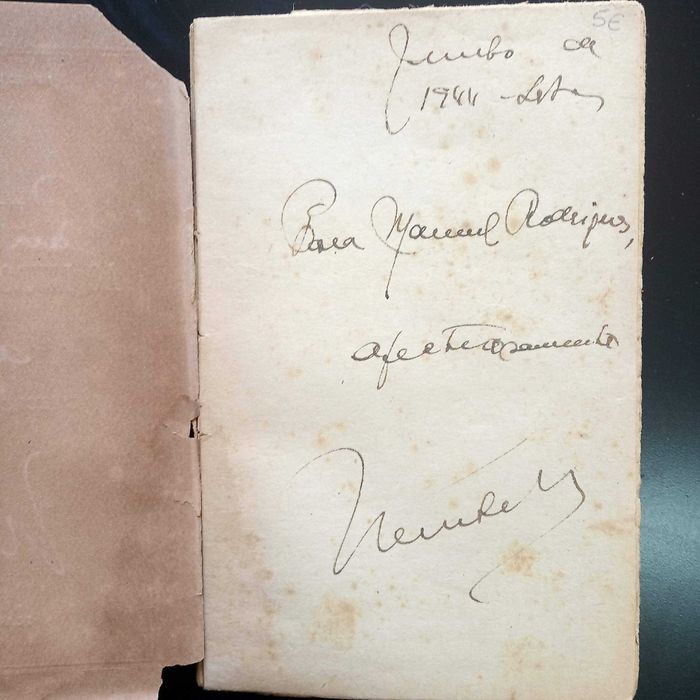 5€
Junho de
1944 -
Para Manuel Rodrigues,
afectuosamente